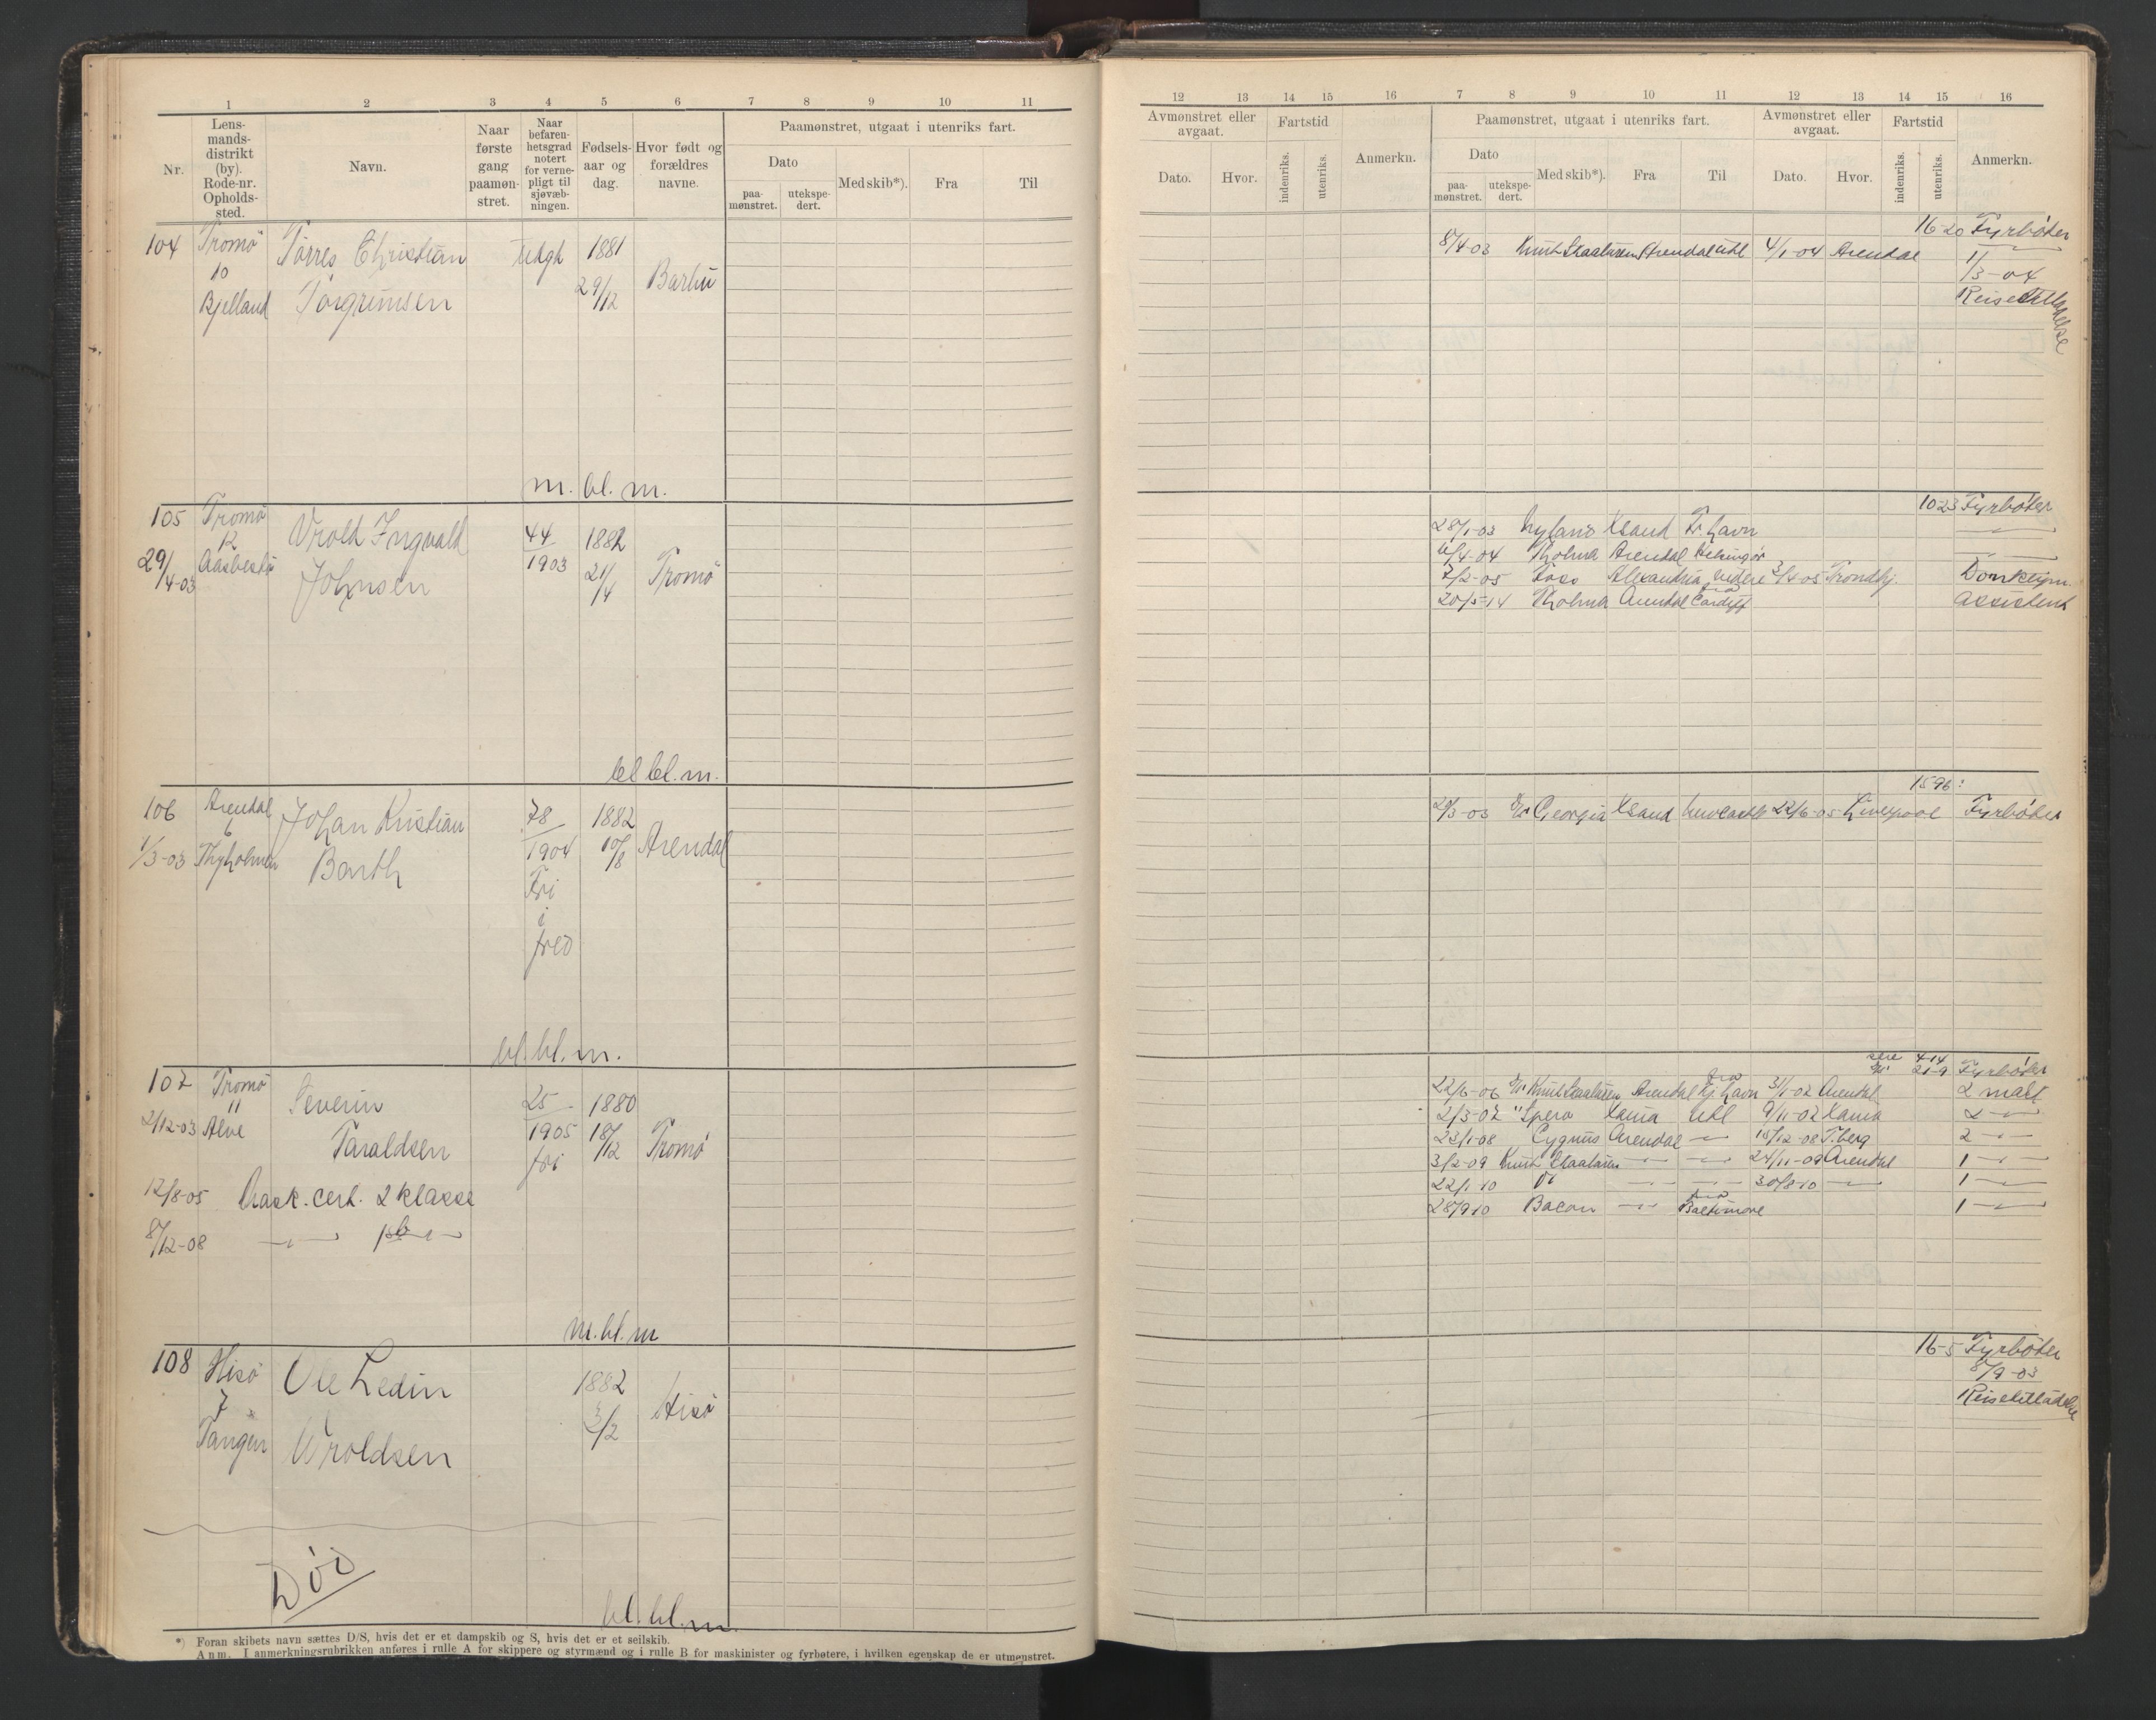 1 2 3 4 5 6 7 8 9 10 11
Nr.
Lens-
mands-
distrikt
(by).
Rode-nr.
Opholds-
sted.
Navn.
Naar
første
gang
paamøn-
stret.
Naar
befaren-
hetsgrad
notert
for verne-
pligt til
sjøvæb-
ningen.
Fødsels-
aar og
dag.
Hvor født og
forældres
navne.
Paamønstret, utgaat i utenriks fart.
Dato
paa-
mønstret.
utekspe-
dert.
Med skib*).
Fra
Til
104
Tromø
10
Bjelland
Tørres Christian
Torgrimsen
Utgh
1881
29/12
Barbu
m. bl. m.
105
29/4-03
Tromø
12
Aasbestø
Vrold Ingvald
Johnsen
44
1903
1882
21/4
Tromø
bl bl. m.
106
1/3-03
Arendal
6
Thyholmen
Johan Kristian
Barth
78
1904
Fri
i
fred
1882
10/8
Arendal
bl. bl. m.
107
2/12-03
Tromø
11
Alve
Severin
Taraldsen
25
1905
fri
1880
18/12
Tromø
12/8-05 Mask. cert. 2 klasse
8/12-08
m. bl. m
108
Hisø
7
Tangen
Ole Ledin
Vroldsen
1882
3/2
Hisø
Død
bl. bl. m.
*) Foran skibets navn sættes D/S, hvis det er et dampskib og S, hvis det er et seilskib.
Anm. I anmerkningsrubrikken anføres i rulle A for skippere og styrmænd og i rulle B for maskinister og fyrbøtere, i hvilken egenskap de er utmønstret.
12 13 14 15 16 7 8 9 10 11 12 13 14 15 16
Avmønstret eller
avgaat.
Dato.
Hvor.
Fartstid
indenriks.
utenriks.
Anmerkn.
Paamønstret, utgaat i utenriks fart.
Dato
paa-
mønstret.
utekspe-
dert.
Med skib*).
Fra
Til
Avmønstret eller
avgaat.
Dato.
Hvor.
Fartstid
indenriks.
utenriks.
Anmerkn.
16-20 Fyrbøter
8/4-03 Knut Skaaluren Arendal utl 4/1-04 Arendal
1/3-04
Reisetilladelse
10 23 Fyrbøter
28/1-03 Nyland Ksand Fr. havn
6/4-04 Tholma Arendal Helsingør
7/2-05 Alexandria videre 3/4-05 Trondhj. Donkeym.
20/5-14 Tholma Arendal fra Cardiff assistent
1596:
29/3-03 D/S Georgia Ksand Newcastle 22/6-05 Liverpool Fyrbøter
4-14
21-9 Fyrbøter
22/6-06 D/S Knut Skaaluren Arendal fra Kj. havn 31/1-07 Arendal 2 mast
2/3-07 " Spero Xania utl 9/11-07 Xania 2 —"—
23/1-08 Cygnus Arendal —"— 15/12-08 T.berg 2 —"—
3/2-09 Knut Skaaluren —"— —"— 24/11-09 Arendal 1 —"—
22/1-10 D° —"— —"— 30/8-10 —"— 1 —"—
28/9 10 Bacon —"— fra Baltimore 1 —"—
16-5 Fyrbøter
8/9-03
Reisetilladelse